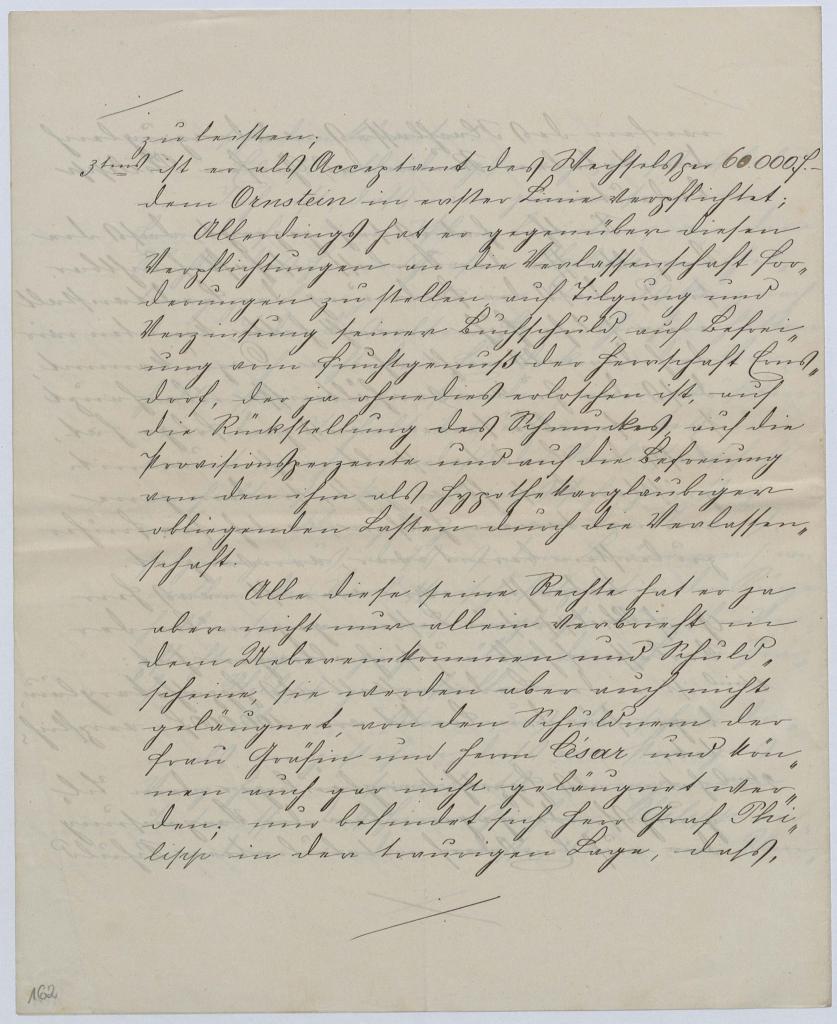 zu leisten;
3tens ist er als Acceptant des Wechsels per 60.000 f.-
dem Ornstein in erster Linie verpflichtet;
Allerdings hat er gegenüber diesen
Verpflichtungen an die Verlassenschaft For„
derungen zu stellen, auf Tilgung und
Verzinsung seiner Buchschuld, auf Befrei„
ung vom Fruchtgenuß der Herrschaft Erns„
dorf, der ja ohnedies erloschen ist, auf
die Rückstellung des Schmuckes, auf die
Provisionsperzente und auf die Befreiung
von den ihm als Hypothekargläubiger
obliegenden Lasten durch die Verlassen„
schaft.
Alle diese seine Rechte hat er ja
aber nicht nur allein verbrieft in
dem Uebereinkommen und Schuld„
scheine, sie werden aber auch nicht
geläugnet, von den Schuldnern der
Frau Gräfin und Herrn César und kön„
nen auch gar nicht geläugnet wer„
den; nur befindet sich Herr Graf Phi„
lipp in der traurigen Lage, dass,
162